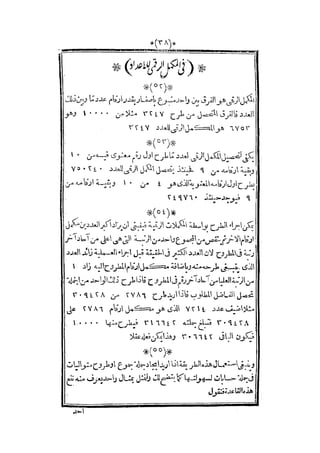 *(٣٨)*
*(في المكمل الرقمي للاعداد)*
*(٥٢)*
المكمل الرقمي هو الفرق بين واحد متبوع باصفار بقدر ارقام عدد ما وبين ذلك
العدد فالفرق المتحصل من طرح ٣٢٤٧ مثلا من ١٠٠٠٠ وهو
٦٧٥٣ هو المكمل الرقمي للعدد ٣٢٤٧
*(٥٣)*
يكفي لتحصيل المكمل الرقمي لعدد ما طرح اول رقم معنوى فيه من ١٠
وبقية ارقامه من ٩ فحينئذ يتحصل المكمل الرقمي للعدد ٧٥٠٢٤٠
بطرح اول ارقامه المعنوية الذى هو ٤ من ١٠ وبقية ارقامه من
٩ فيوجد حينئذ ٢٤٩٧٦٠
*(٥٤)*
يمكن اجراء الطرح بواسطة المكملات الرقمية فينبغي ان يزاد اكبر العددين بمكمل
ارقام الاخر ثم ينقص من المجموع واحد من الرتبة التي هي اعلى من آحاد آخر
رتبة في المطروح لان العدد الكثير في الحقيقة قبل اجراء العملية زائد العدد
الذى ينبغي طرحه منه وباضافة مكمل ارقام المطروح اليه زاد ١
من الرتبة العليا من آحاد آخر رقم في المطروح فاذا طرح ذلك الواحد من الجملة
تحصل الفاضل المطلوب فاذا اريد طرح ٢٧٨٦ من ٣٠٩٤٢٨
مثلا اضيف عدد ٧٢١٤ الذى هو مكمل ارقام ٢٧٨٦ على
٣٠٩٤٢٨ فتبلغ جملته ٣١٦٦٤٢ فيطرح منها ١٠٠٠٠
فيكون الباقى ٣٠٦٦٤٢ وهذا يمكن فعله عقلا
*(٥٥)*
وينبغي استعمال هذه الطريقة اذا اريد ايجاد جملة جموع او طروح متواليات
في جملة حسابات لسهولتها كما يتضح لك ولنمثل بمثال واحد يعرف منه نفع
هذه القاعدة فنقول